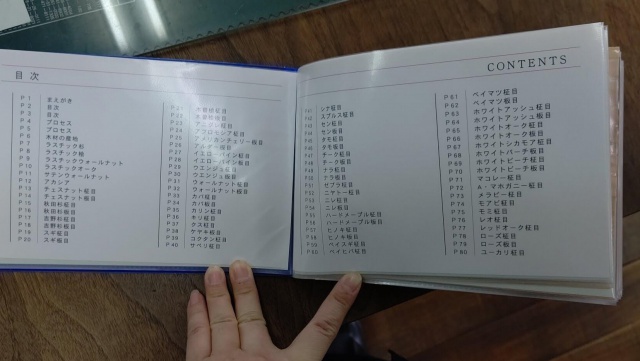 目次
CONTENTS
P 1 まえがき
P 2 目次
P 3 目次
P 4 プロセス
P 5 プロセス
P 6 木材の産地
P 7 ラスチック杉
P 8 ラスチック桧
P 9 ラスチックウォールナット
P 10 ラスチックオーク
P 11 サテンウォールナット
P 12 アカシア
P 13 チェスナット柾目
P 14 チェスナット板目
P 15 秋田杉柾目
P 16 秋田杉板目
P 17 吉野杉柾目
P 18 吉野杉板目
P 19 スギ柾目
P 20 スギ板目
P 21 木曽桧柾目
P 22 木曽桧板目
P 24 アフロモシア柾目
P 25 アメリカンチェリー板目
P 27 イエローパイン柾目
P 28 イエローパイン板目
P 29 ウエンジュ柾目
P 30 ウエンジュ板目
P 31 ウォールナット柾目
P 32 ウォールナット板目
P 33 カバ柾目
P 34 カバ板目
P 35 カリン柾目
P 36 キリ柾目
P 37 クス柾目
P 38 ケヤキ柾目
P 39 コクタン柾目
P 40 サペリ柾目
P 41 シナ柾目
P 42 スプルス柾目
P 43 セン柾目
P 44 セン板目
P 45 タモ柾目
P 46 タモ板目
P 47 チーク柾目
P 48 チーク板目
P 49 ナラ柾目
P 50 ナラ板目
P 51 ゼブラ柾目
P 52 ニヤトー柾目
P 53 ニレ柾目
P 54 ニレ板目
P 55 ハードメープル柾目
P 56 ハードメープル板目
P 57 ヒノキ柾目
P 58 ヒノキ板目
P 59 ベイスギ柾目
P 60 ベイヒバ柾目
P 61 ベイマツ柾目
P 62 ベイマツ板目
P 63 ホワイトアッシュ柾目
P 64 ホワイトアッシュ板目
P 65 ホワイトオーク柾目
P 66 ホワイトオーク板目
P 67 ホワイトシカモア柾目
P 68 ホワイトバーチ板目
P 69 ホワイトビーチ柾目
P 70 ホワイトビーチ板目
P 71 マコレー柾目
P 72 A・マホガニー柾目
P 73 メラピー柾目
P 74 モアビ柾目
P 75 モミ柾目
P 76 レオ柾目
P 77 レッドオーク柾目
P 78 ローズ柾目
P 79 ローズ板目
P 80 ユーカリ柾目